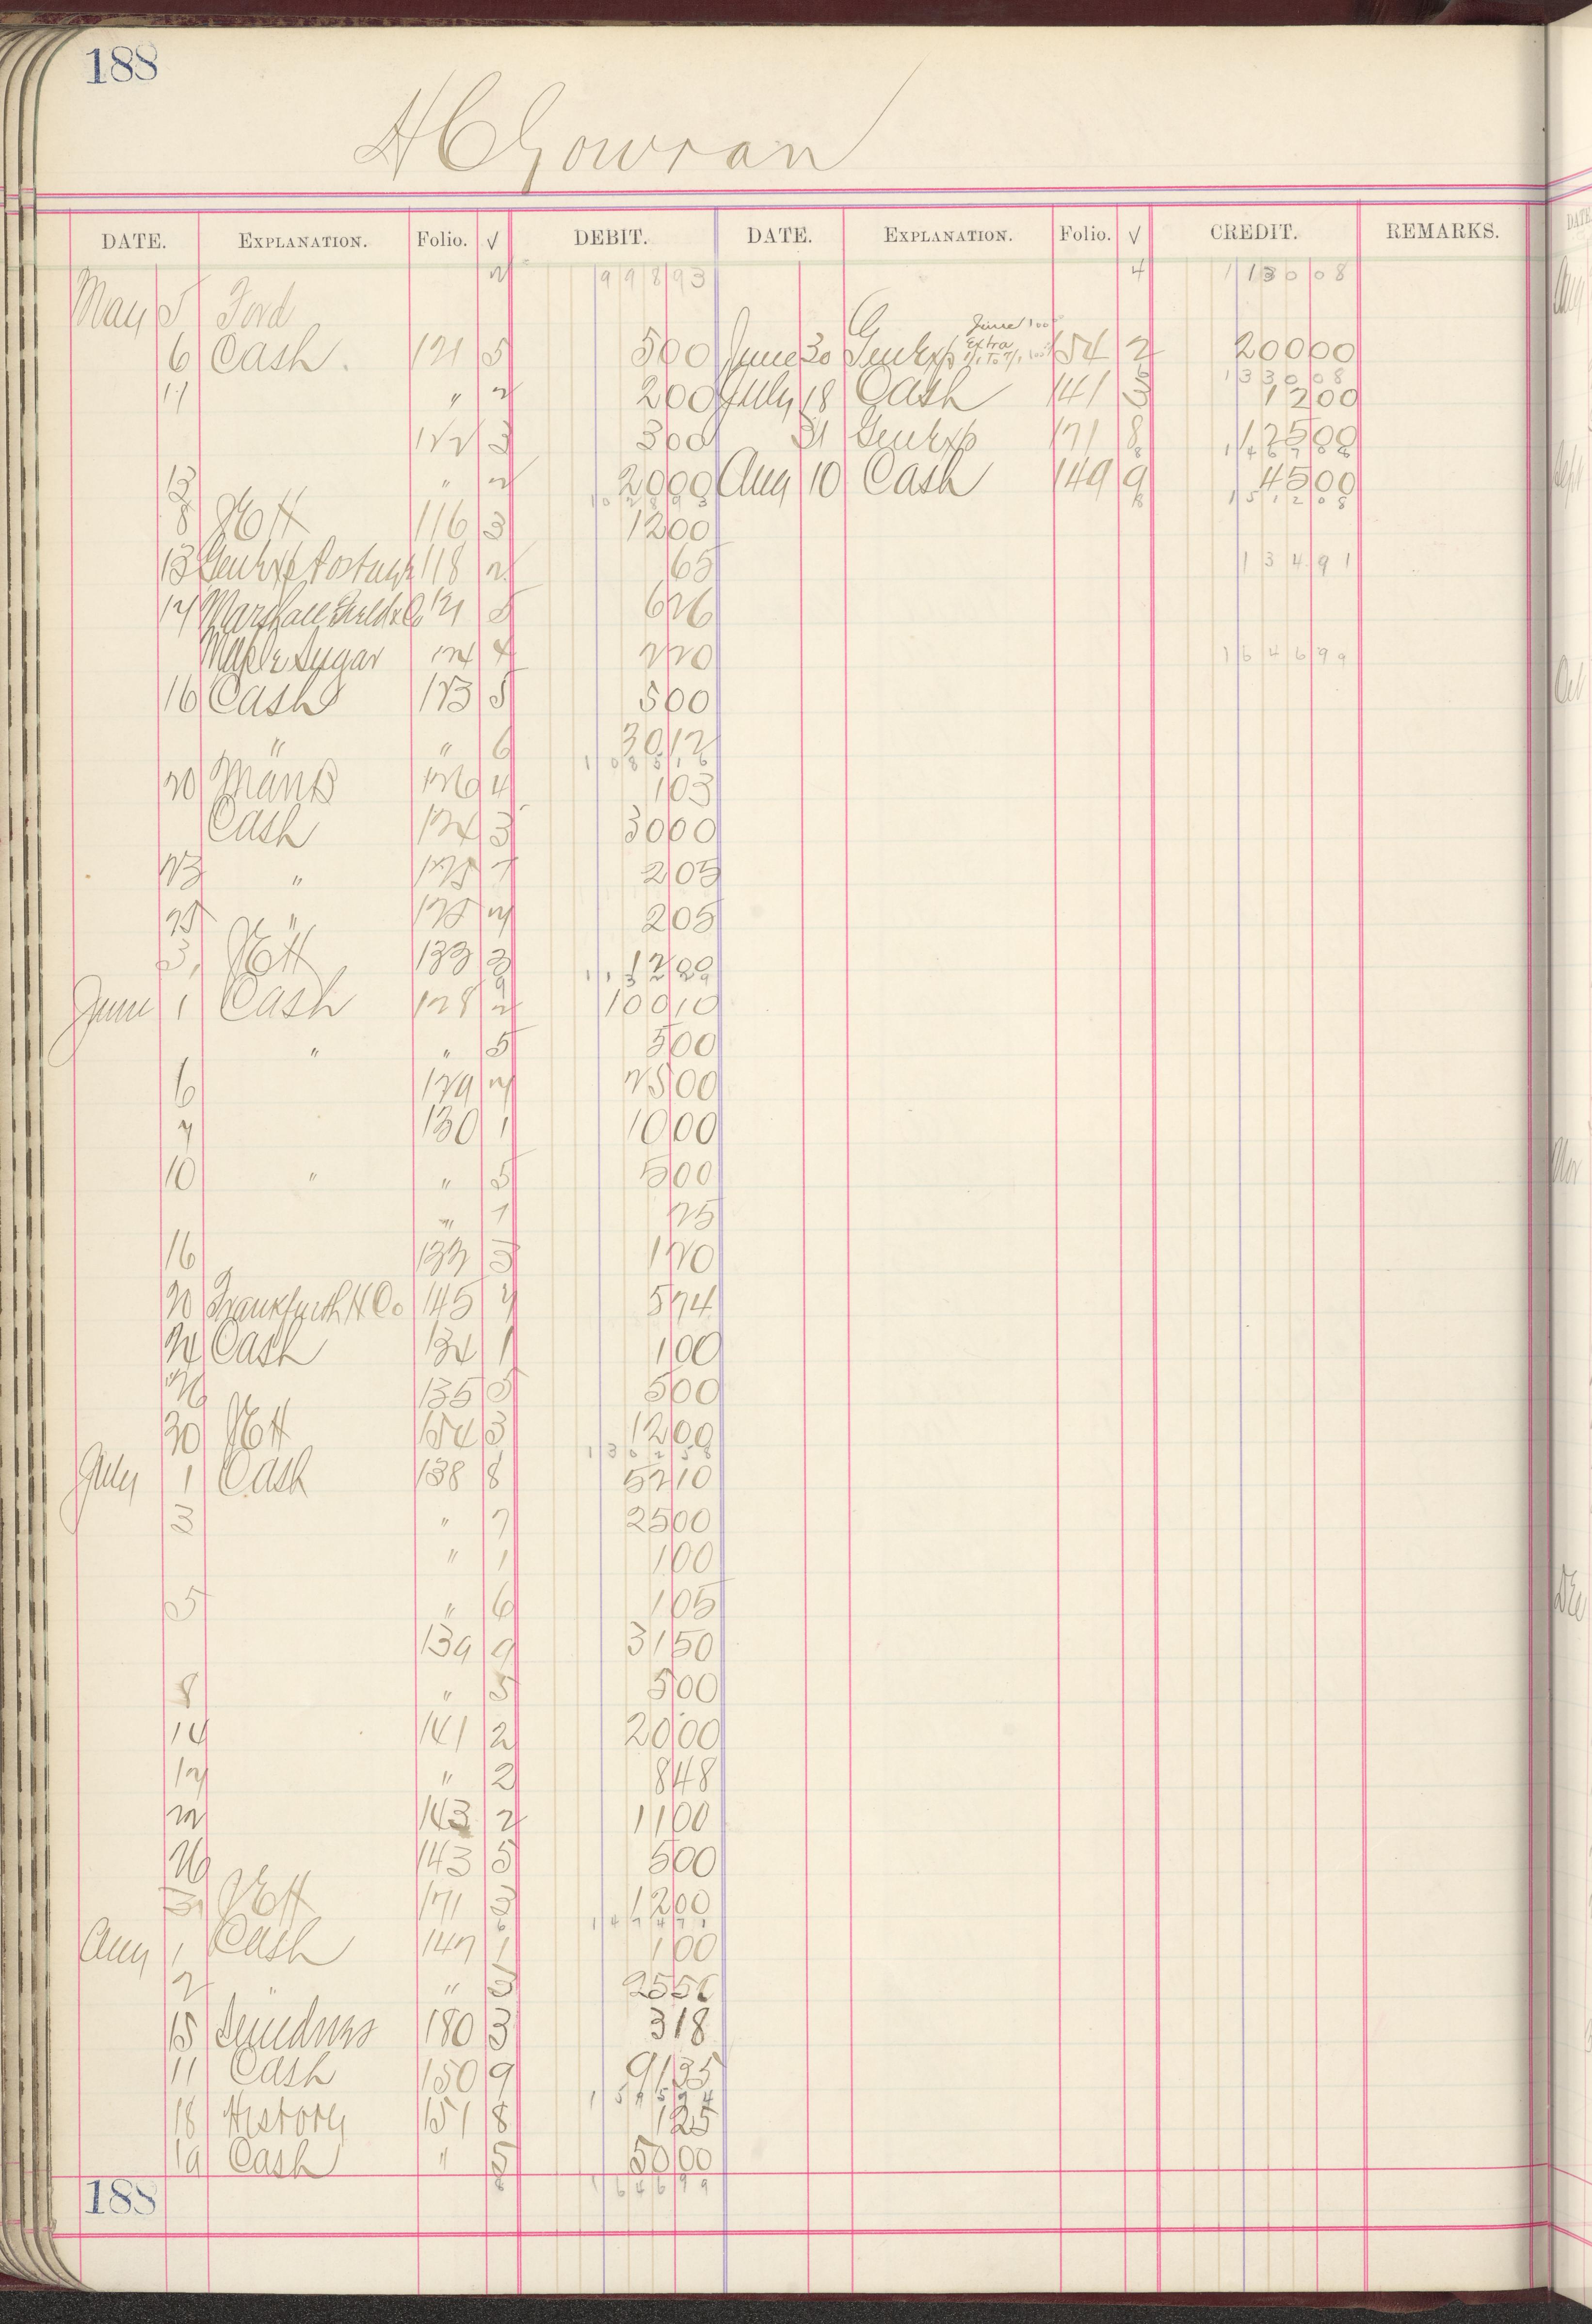 188
HC Gowran
DATE. EXPLANATION. Folio. √ DEBIT. DATE. EXPLANATION. Folio. √ CREDIT. REMARKS.
99893 4 113008
May 5 Ford
6 Cash. 121 5 500 June 30 Genl Exp June 100 Extra 154 2 20000
133008
" 2 200 July 18 Cash 141 3 1200
122 3 300 31 Genl Exp 171 8 12500
" 2 2000 Aug 10 Cash 149 9 4500
116 3 1200
13 Genl Exp Postage 118 2 65 13491
14 Marshall Field & Co 121 5 626
Maple Sugar 4 220 164699
16 Cash 123 5 500
" " 6 3012
20 126 4 103
Cash 124 3 3000
23 " 125 205
25 " 125 2 205
31 133 3 1200
June 1 Cash 128 2 10010
" " 5 500
6 129 2 2500
7 130 1 1000
10 " " 5 500
" 1 25
16 133 3 120
20 Frankfurth H Co 145 4 574
24 Cash 134 1 100
26 135 5 500
30 154 3 1200
July 1 Cash 138 8 5210
3 " 7 2500
" 1 100
5 " 6 105
139 9 3150
8 " 5 500
14 141 2 2000
17 " 2 848
22 143 2 1100
26 143 5 500
31 171 3 1200
Aug 1 Cash 147 1 100
2 " " 5 2556
15 Sundries 180 3 318
11 Cash 150 9 9135
18 History 151 8 125
19 Cash " 5 5000
188 164699